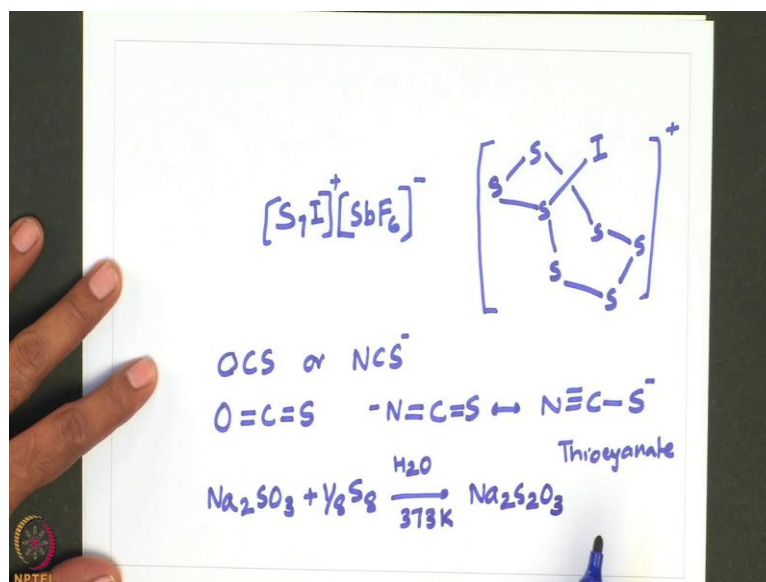 [S₇I]⁺[SbF₆]⁻
[
S
I
S
S
S
S
S
S
]⁺
OCS or NCS⁻
O=C=S ⁻N=C=S ↔ N≡C−S⁻
Thiocyanate
Na₂SO₃ + 1/8 S₈ ⟶ Na₂S₂O₃
H₂O
373K
NPTEL